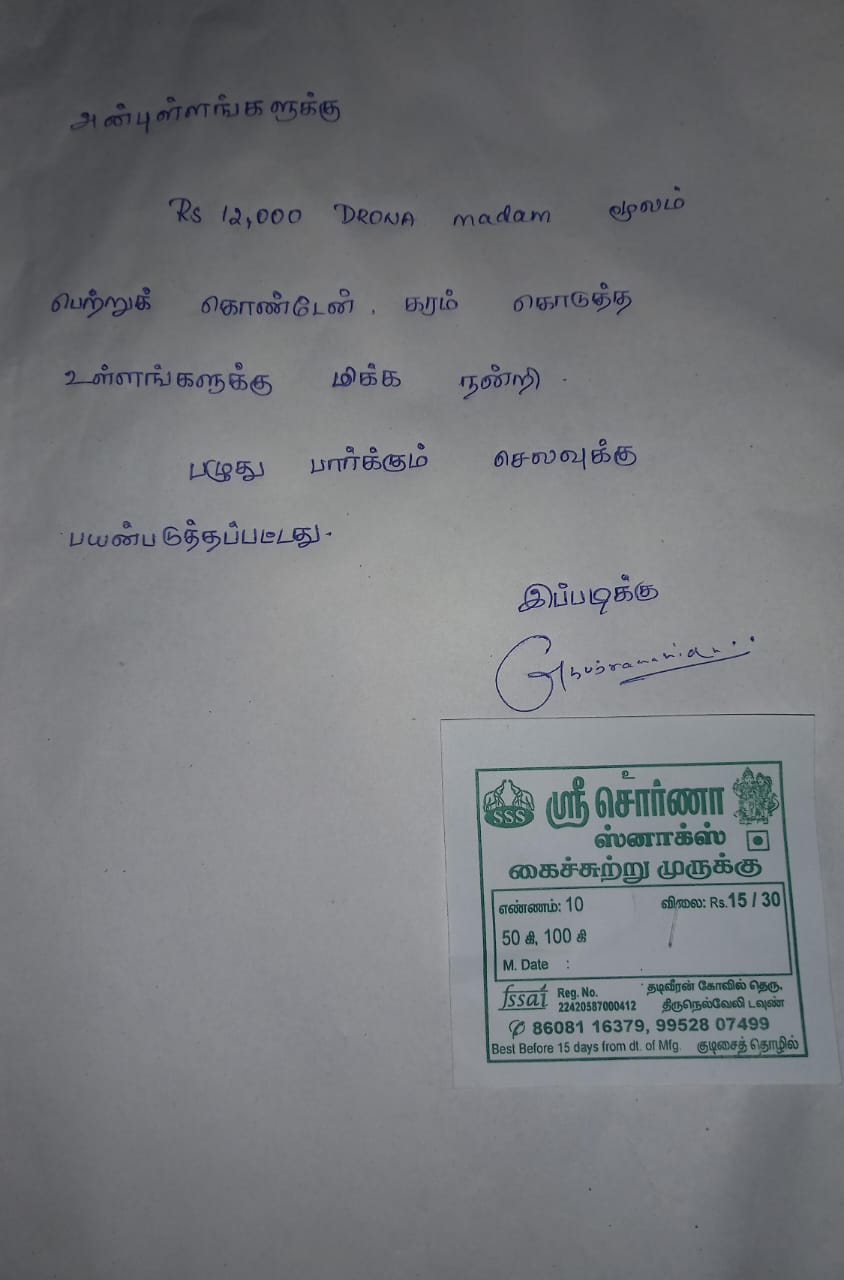 அன்புள்ளங்களுக்கு
Rs 12,000 DRONA madam மூலம்
பெற்றுக் கொண்டேன். கரம் கொடுத்த
உள்ளங்களுக்கு மிக்க நன்றி.
பழுது பார்க்கும் செலவுக்கு
பயன்படுத்தப்பட்டது.
இப்படிக்கு
உ
SSS ஸ்ரீ சொர்ணா
ஸ்னாக்ஸ்
கைச்சுற்று முருக்கு
எண்ணம்: 10 விலை: Rs.15 / 30
50 கி, 100 கி
M. Date :
fssai Reg. No. 22420587000412
தடிவீரன் கோவில் தெரு,
திருநெல்வேலி டவுண்
86081 16379, 99528 07499
Best Before 15 days from dt. of Mfg. குடிசைத் தொழில்